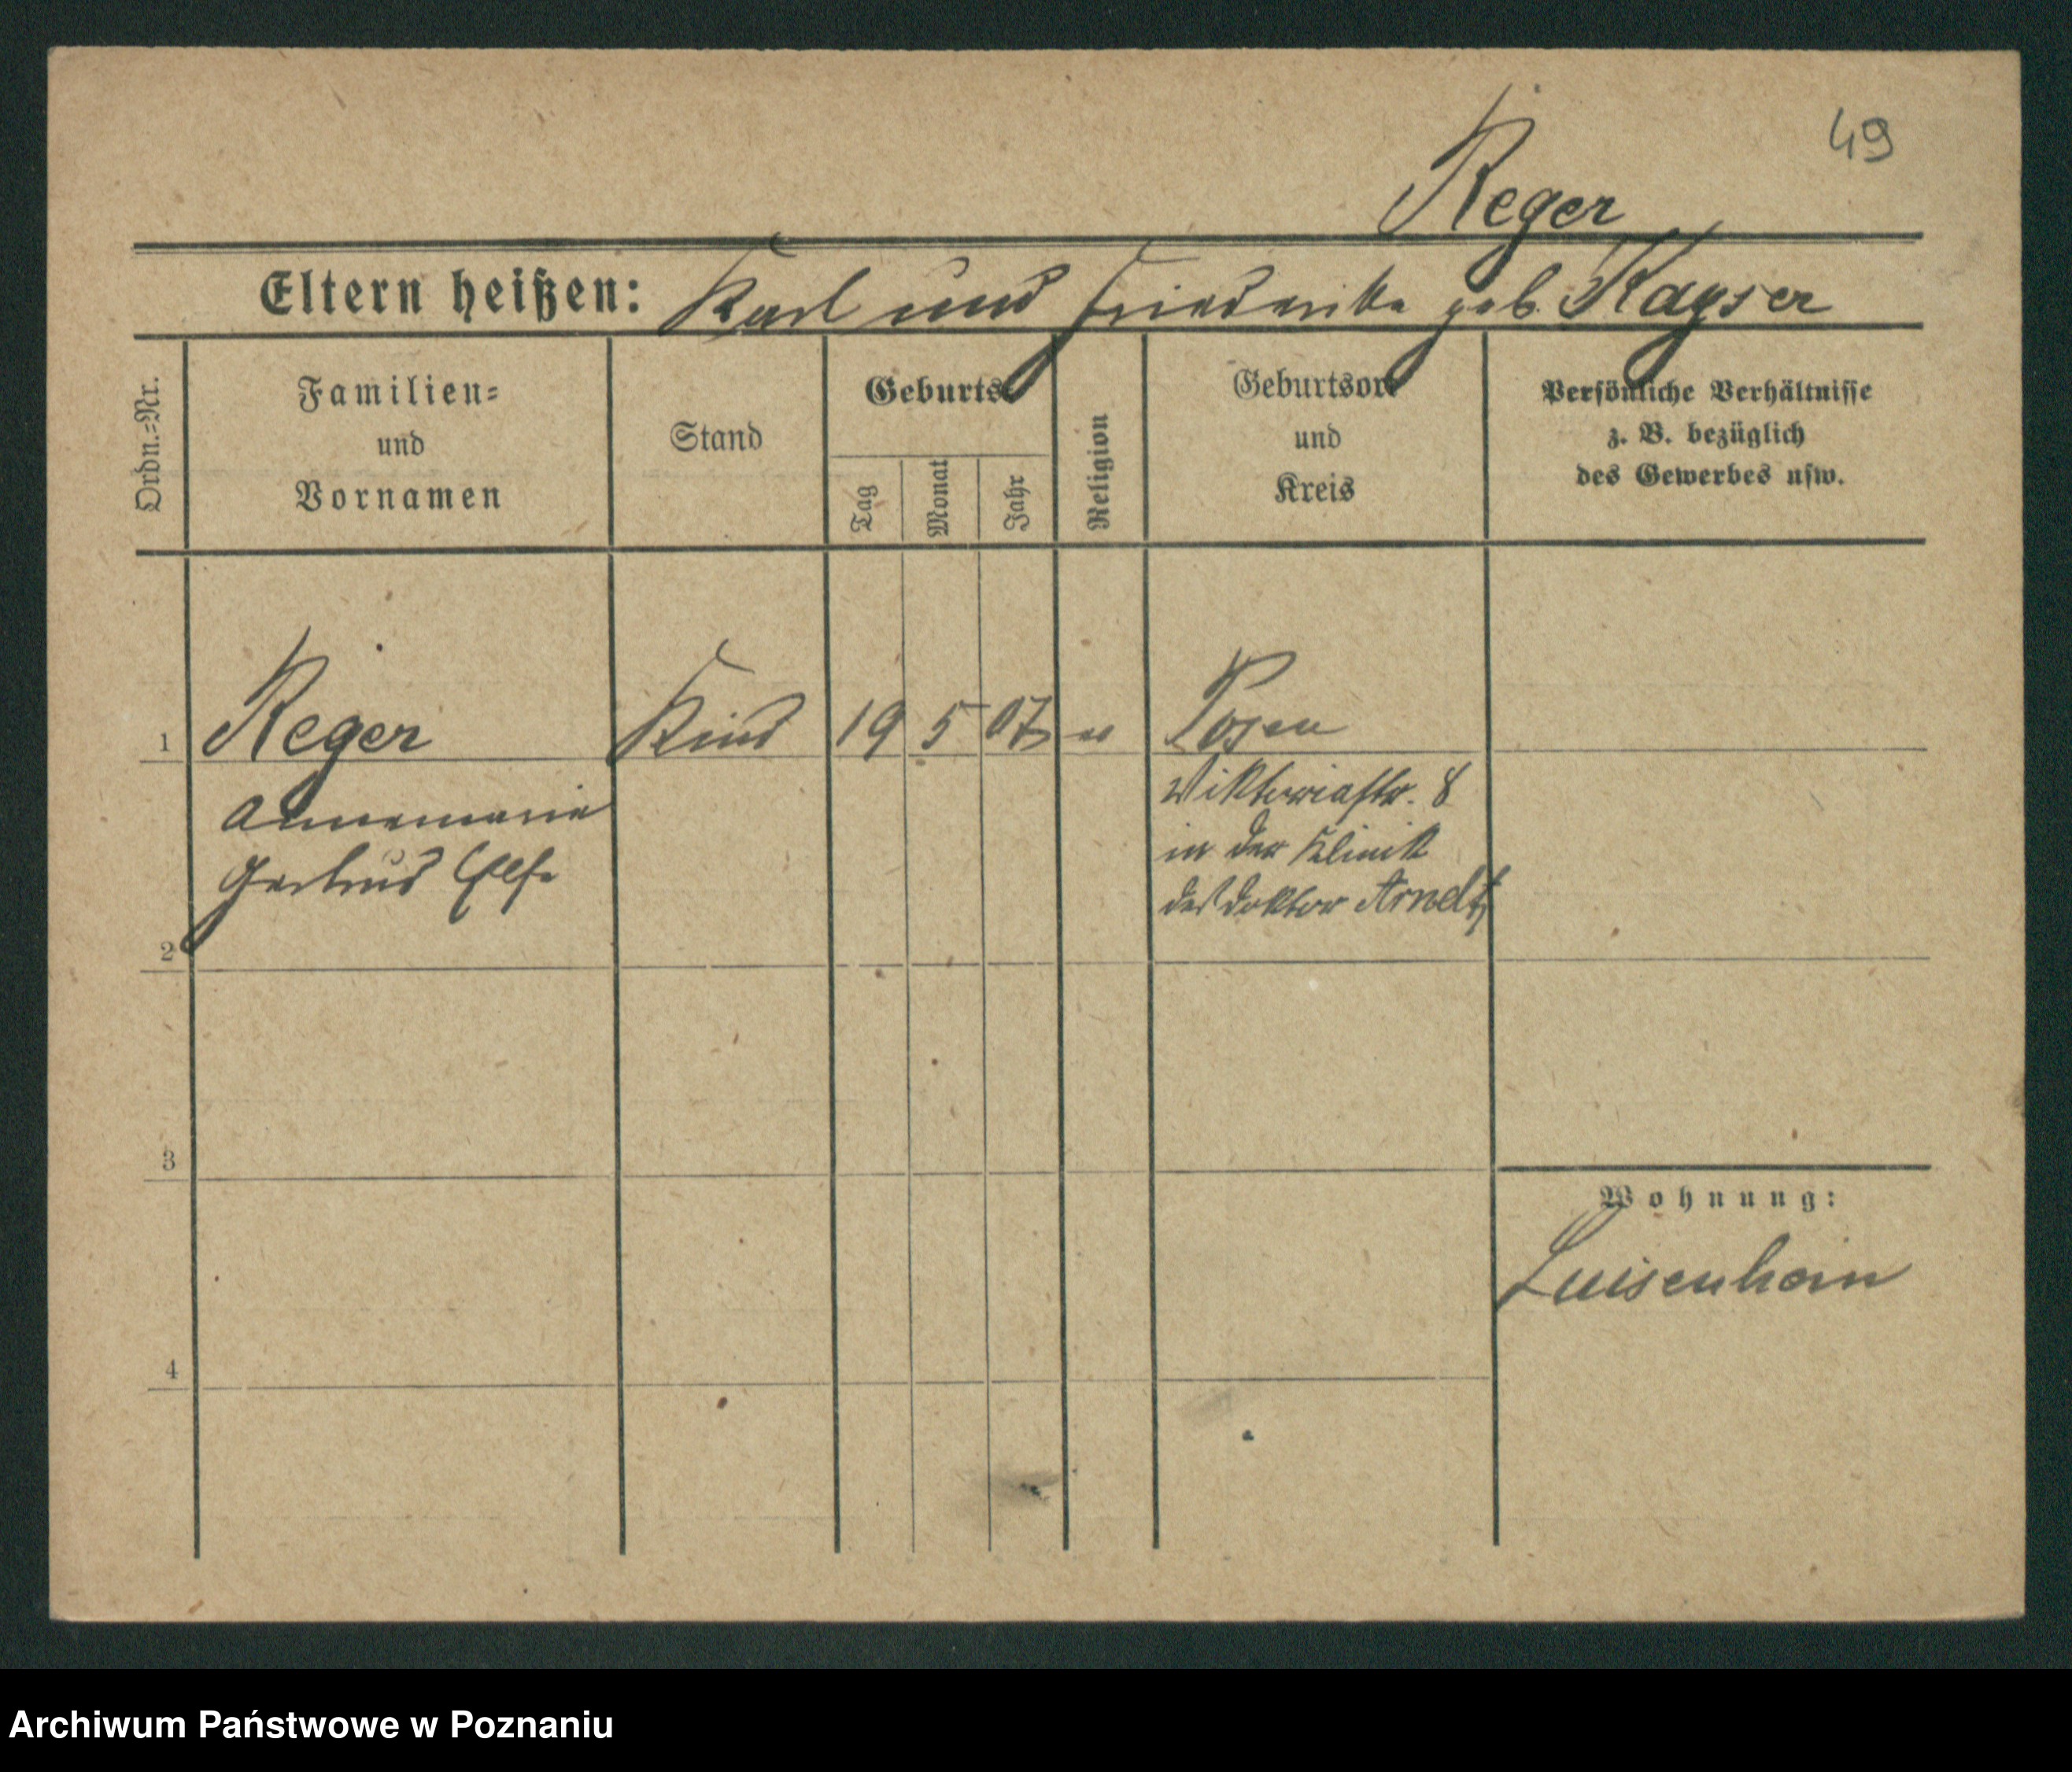 49
Reger
Eltern heißen: Karl und Friederike geb. Kayser
Ordn.=Nr.
Familien=
und
Vornamen
Stand
Geburts=
Tag
Monat
Jahr
Religion
Geburtsort
und
Kreis
Persönliche Verhältnisse
z. B. bezüglich
des Gewerbes usw.
1 Reger Kind 19 5 07 Posen
Annemarie
Gertrud Else
Viktoriastr. 8
in der Klinik
des Doktor Arndt
2
3
4
Wohnung:
Luisenhain
Archiwum Państwowe w Poznaniu